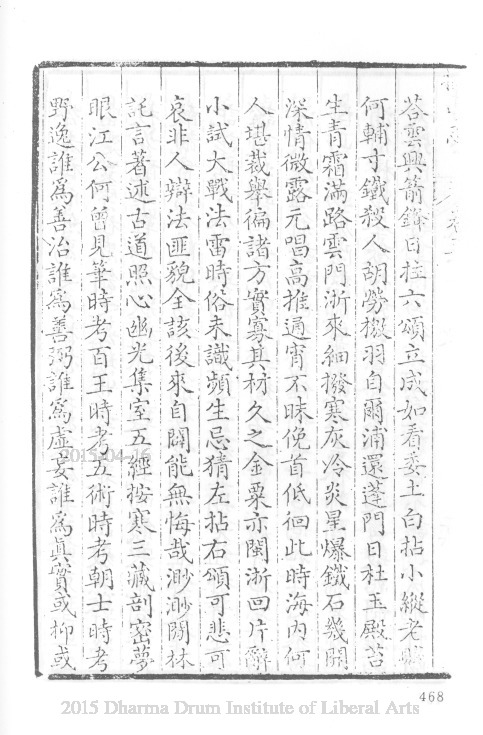 荅雲興箭鋒日拄六頌立成如看委土白拈小縱老賊
何輔寸鐵殺人胡勞掇羽自爾浦還蓬門日杜玉殿苔
生青霜滿路雲門浙來細撥寒灰冷炎星爆鐵石幾開
深情微露元唱高推通宵不昧俛首低徊此時海內何
人堪裁舉徧諸方實寡其材久之金粟亦閩浙回片辭
小試大戰法雷時俗未識頻生忌猜左拈右頌可悲可
哀非人辯法匪貌全該後來自闢能無悔哉渺渺關林
託言著述古道照心幽光集室五經按寒三藏剖密夢
眼江公何曾見筆時考百王時考五術時考朝士時考
野逸誰爲善冶誰爲善弼誰爲虛妄誰爲眞實或抑或
2015-04-16
468
2015 Dharma Drum Institute of Liberal Arts